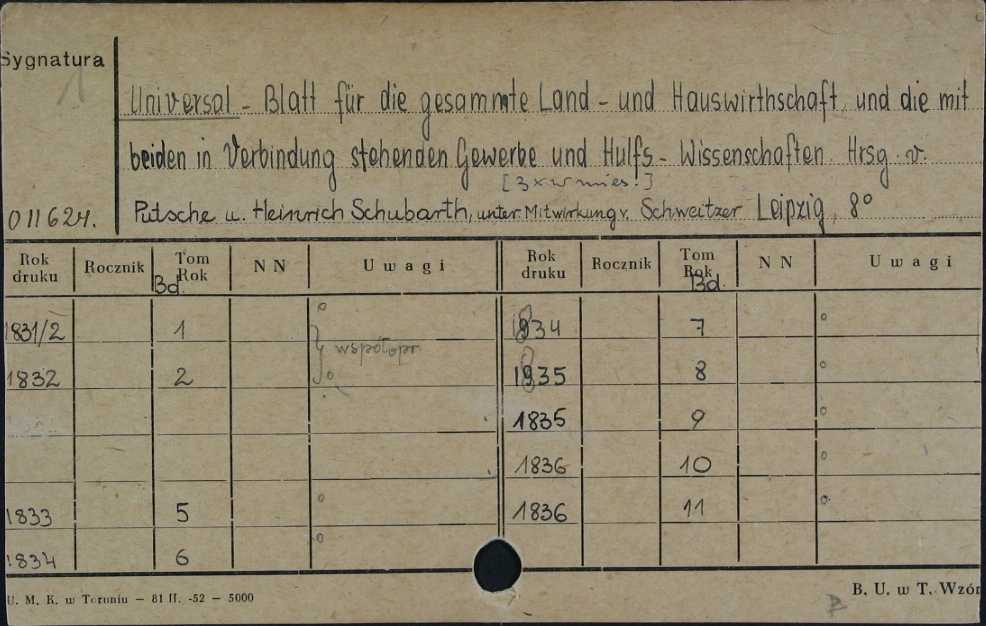 Sygnatura
1
Universal - Blatt für die gesammte Land - und Hauswirthschaft und die mit
beiden in Verbindung stehenden Gewerbe und Hulfs - Wissenschaften. Hrsg. v.
[3 x w mies.]
011624. Putsche u. Heinrich Schubarth, unter Mitwirkung v. Schweitzer Leipzig, 8°
Rok druku Rocznik Tom Rok Bd. NN Uwagi Rok druku Rocznik Tom Rok Bd. NN Uwagi
1831/2 1 współopr. 1834 7
1832 2 1835 8
1835 9
1836 10
1833 5 1836 11
1834 6
U. M. K. w Toruniu — 81 II. -52 — 5000
B. U. w T. Wzór